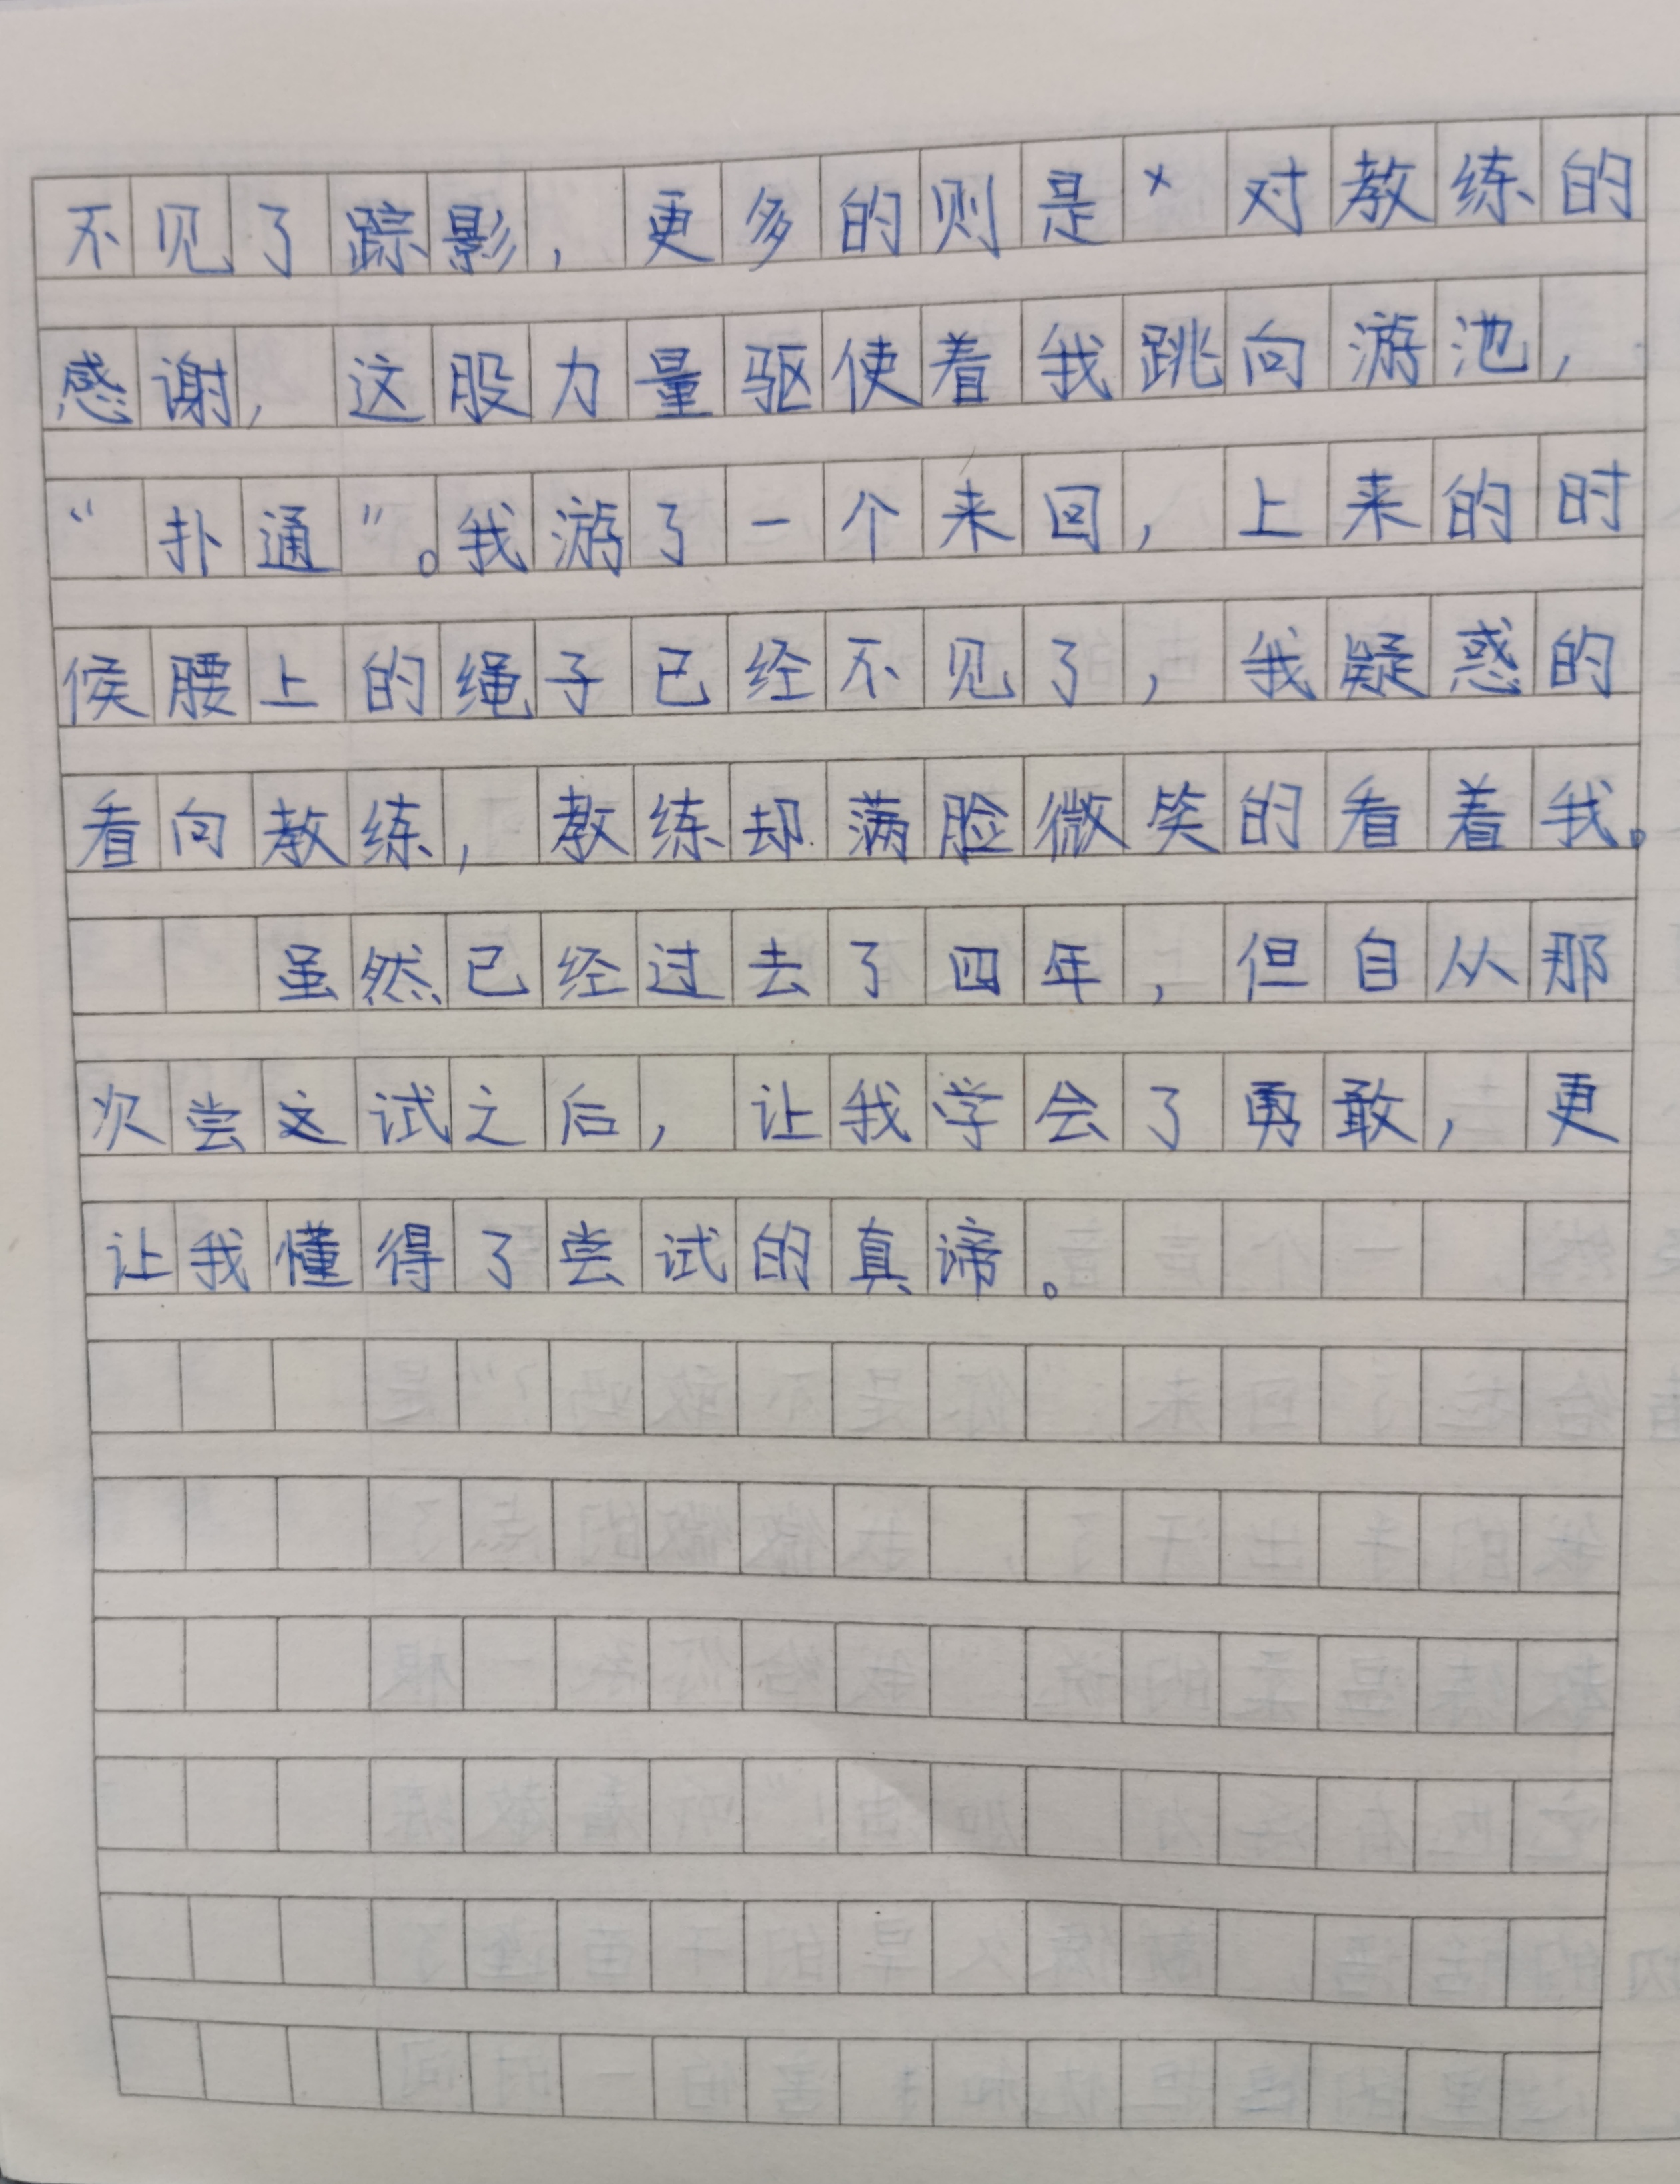 不见了踪影，更多的则是对教练的
感谢，这股力量驱使着我跳向游池，
“扑通”。我游了一个来回，上来的时
候腰上的绳子已经不见了，我疑惑的
看向教练，教练却满脸微笑的看着我。
虽然已经过去了四年，但自从那
次尝这试之后，让我学会了勇敢，更
让我懂得了尝试的真谛。